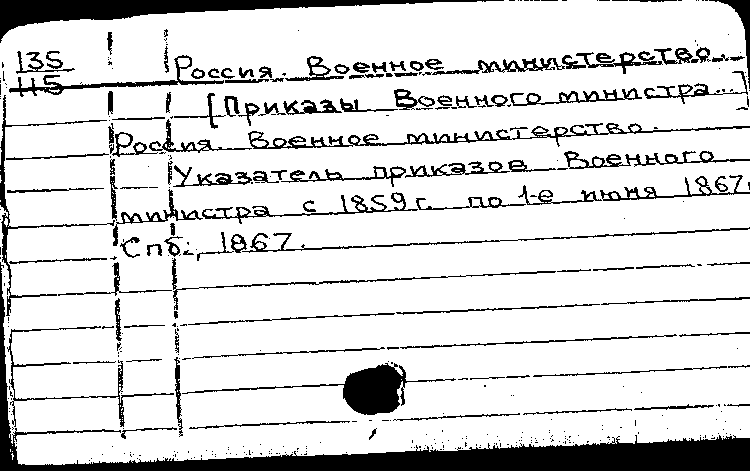 135
115
Россия. Военное министерство.
[Приказы Военного министра...]
Россия. Военное министерство.
Указатель приказов Военного
министра с 1859 г. по 1-е июня 1867г.
Спб., 1867.